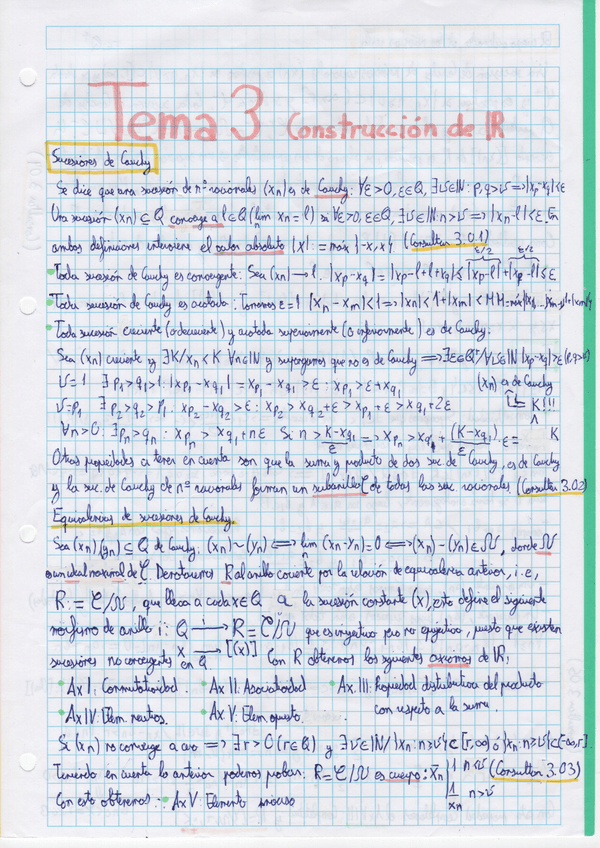 Tema 3 Construcción de ℝ
Sucesiones de Cauchy
Se dice que una sucesión de nº racionales (xn) es de Cauchy: ∀ε>0, ε∈Q, ∃υ∈ℕ: p,q>υ ⟹ |xp-xq|<ε
Una sucesión (xn)⊆Q converge a l∈Q (lim xn = l) si ∀ε>0, ε∈Q, ∃υ∈ℕ: n>υ ⟹ |xn-l|<ε. En
ambas definiciones interviene el valor absoluto |x| := máx{-x,x} (Consultar 3.01)
• Toda sucesión de Cauchy es convergente: Sea (xn)→l. |xp-xq| = |xp-l+l+xq| ≤ |xp-l|+|xp-l| ≤ ε
ε/2 ε/2
• Toda sucesión de Cauchy es acotada: Tomamos ε=1 |xn-xm|<1 ⟹ |xn|<1+|xm|<M
• Toda sucesión creciente (o decreciente) y acotada superiormente (o inferiormente) es de Cauchy.
Sea (xn) creciente y ∃K/xn<K ∀n∈ℕ y supongamos que no es de Cauchy ⟹ ∃ε∈Q⁺/∀υ∈ℕ |xp-xq|>ε (p,q>υ)
υ=1 ∃p₁>q₁>1: |xp₁-xq₁| = xp₁-xq₁>ε: xp₁>ε+xq₁ (xn) es de Cauchy
υ=p₁ ∃p₂>q₂>p₁: xp₂-xq₂>ε: xp₂>xq₂+ε>xp₁+ε>xq₁+2ε K!!!
∀n>0: ∃pn>qn: xpn>xq₁+nε Si n>(K-xq₁)/ε ⟹ xpn>xq₁+(K-xq₁)/ε·ε = K
Otras propiedades a tener en cuenta son que la suma y producto de dos suc. de Cauchy, es de Cauchy
y la suc. de Cauchy de nº racionales forman un subanillo C de todas las suc. racionales (Consultar 3.02)
Equivalencias de sucesiones de Cauchy.
Sea (xn)(yn)⊆Q de Cauchy: (xn)~(yn) ⟺ lim (xn-yn)=0 ⟺ (xn)-(yn)∈N, donde N
es un ideal maximal de C. Denotaremos R al anillo cociente por la relación de equivalencia anterior, i.e,
R:=C/N, que lleva a cada x∈Q a la sucesión constante (x), esto define el siguiente
morfismo de anillo i: Q →i R=C/N que es inyectivo pero no epiyectivo, puesto que existen
x → [(x)]
sucesiones no convergentes en Q. Con R obtenemos los siguientes axiomas de ℝ:
• Ax I: Conmutatividad. • Ax II: Asociatividad • Ax. III: Propiedad distributiva del producto
• Ax IV: Elem. neutros. • Ax V: Elem opuesto. con respecto a la suma.
Si (xn) no converge a cero ⟹ ∃r>0 (r∈Q) y ∃υ∈ℕ/ {xn: n≥υ}⊂[r,∞) ó {xn: n≥υ}⊂(-∞,r].
Teniendo en cuenta lo anterior podemos probar: R=C/N es cuerpo: x̄n {1 n≤υ (Consultar 3.03)
1/xn n>υ
Con esto obtenemos: • Ax V: Elemento inverso